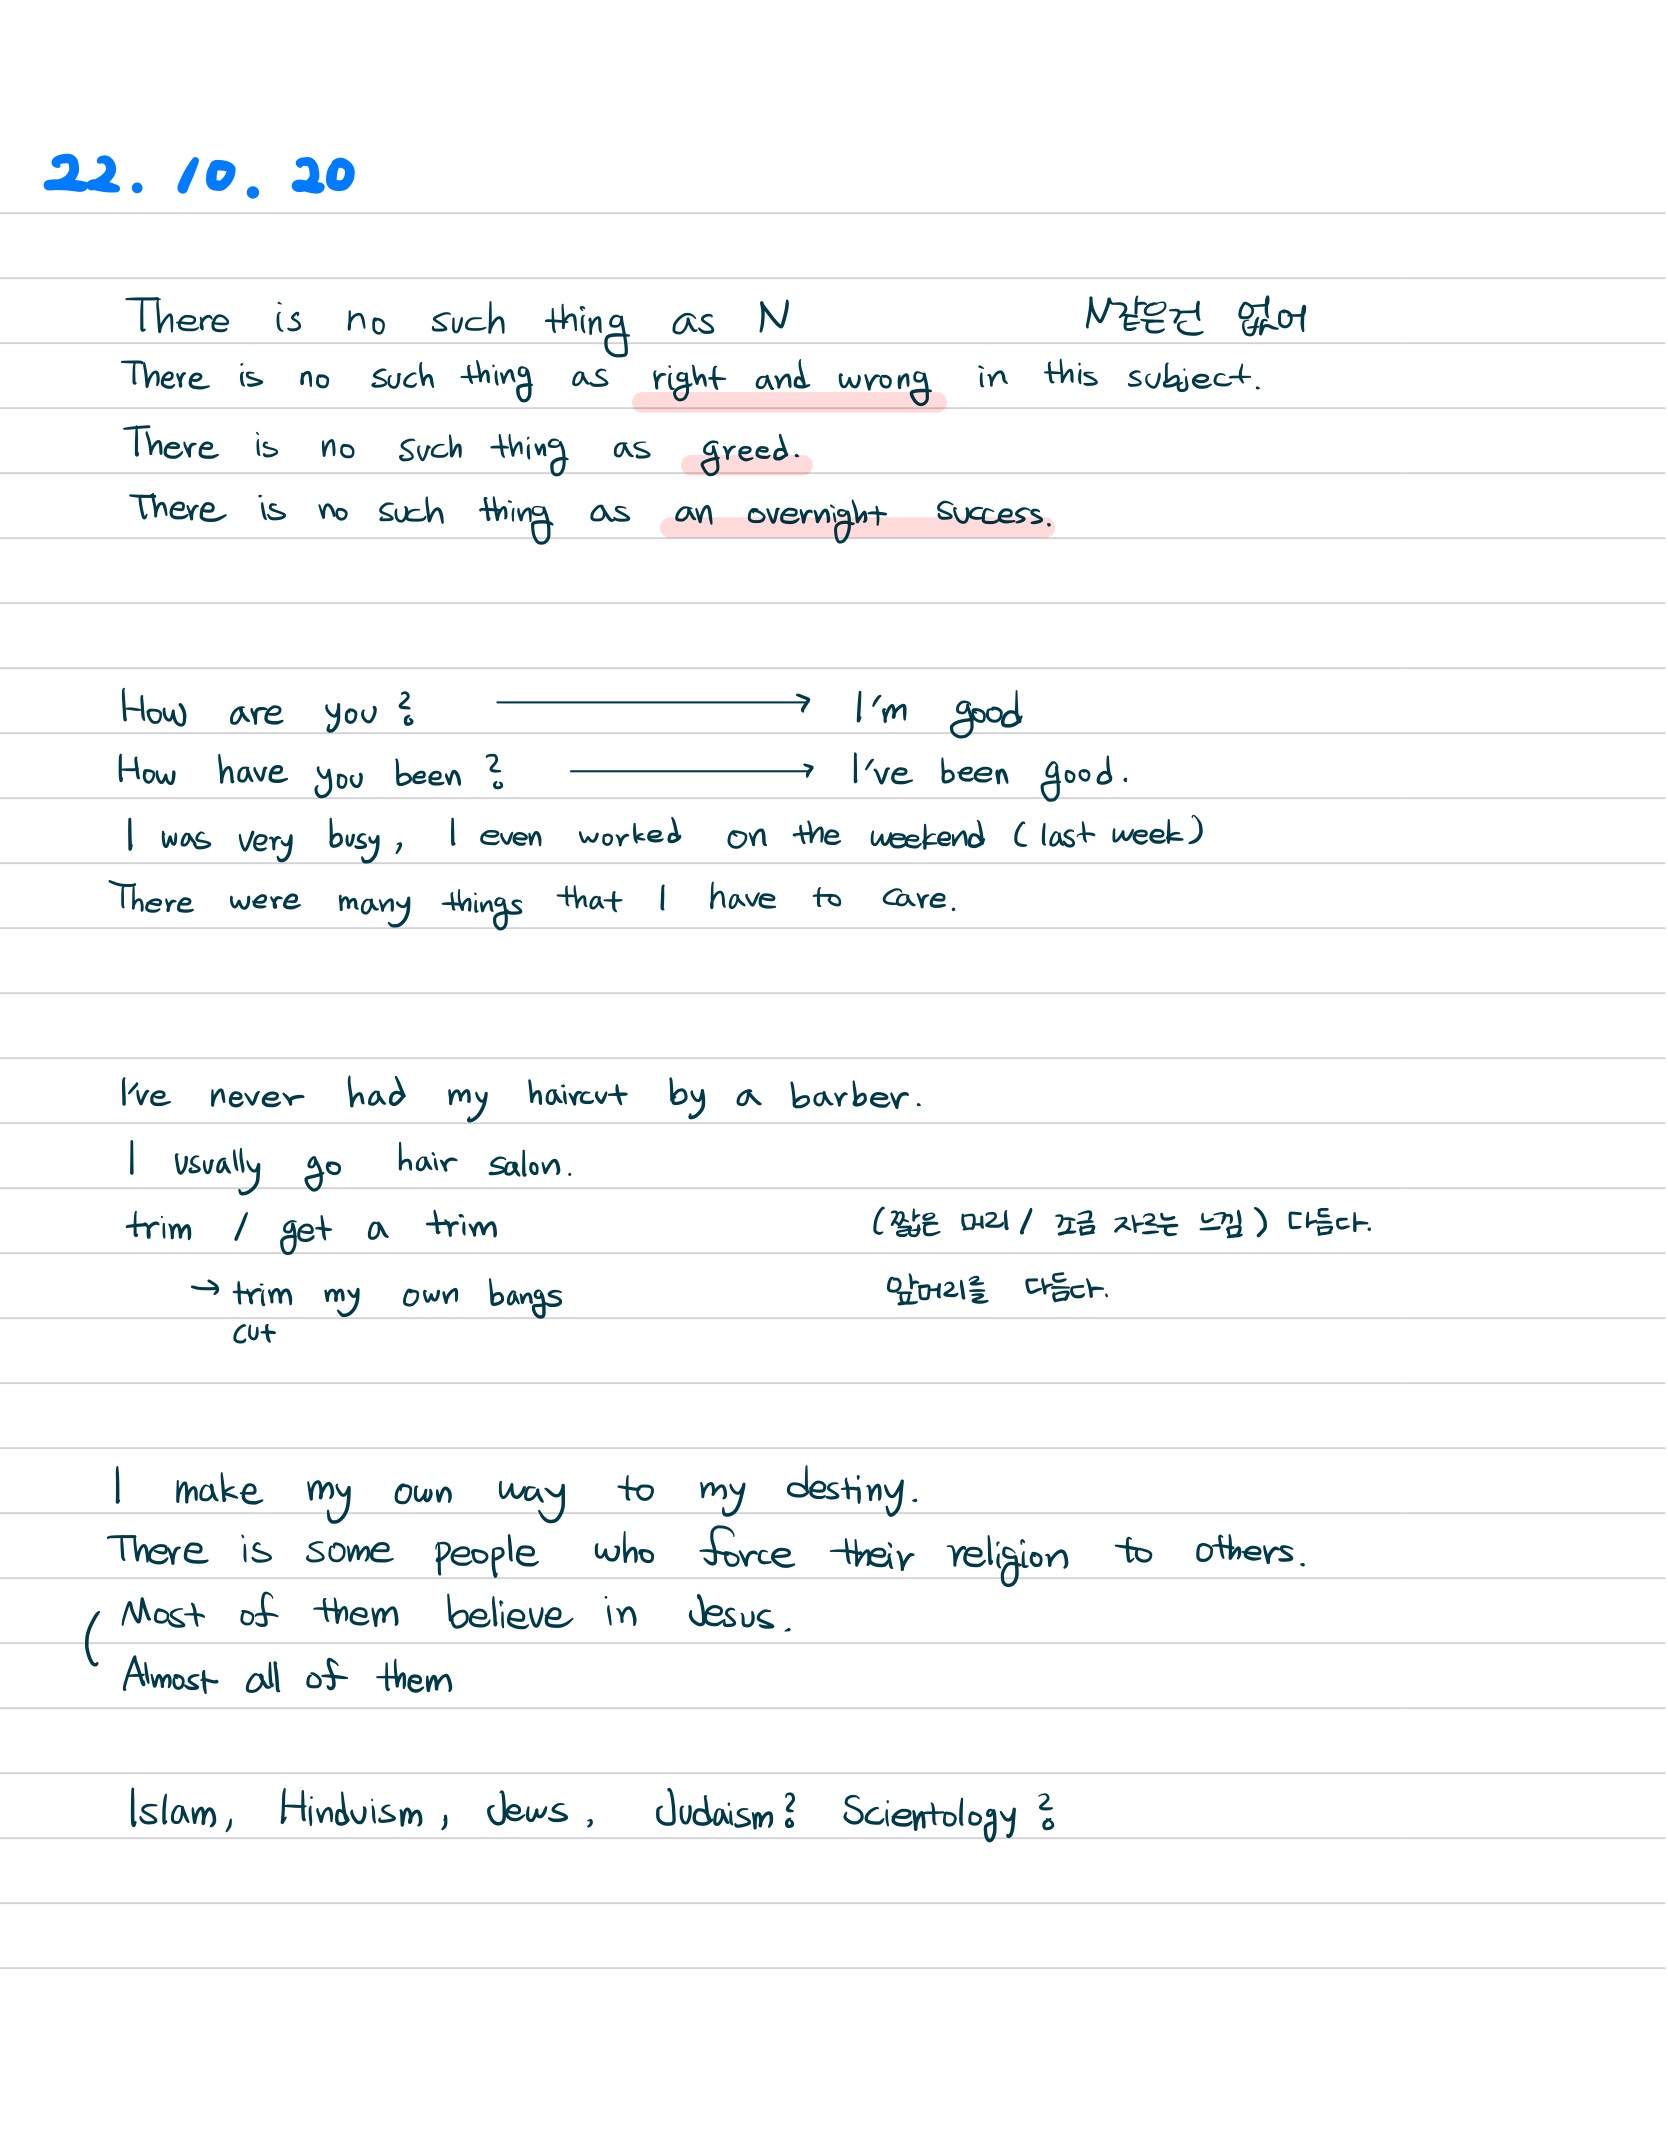 22. 10. 20
There is no such thing as N N같은건 없어
There is no such thing as right and wrong in this subject.
There is no such thing as greed.
There is no such thing as an overnight success.
How are you? → I'm good
How have you been? → I've been good.
I was very busy, I even worked on the weekend (last week)
There were many things that I have to care.
I've never had my haircut by a barber.
I usually go hair salon.
trim / get a trim (짧은 머리 / 조금 자르는 느낌) 다듬다.
→ trim my own bangs 앞머리를 다듬다.
cut
I make my own way to my destiny.
There is some people who force their religion to others.
( Most of them believe in Jesus.
Almost all of them
Islam, Hinduism, Jews, Judaism? Scientology?